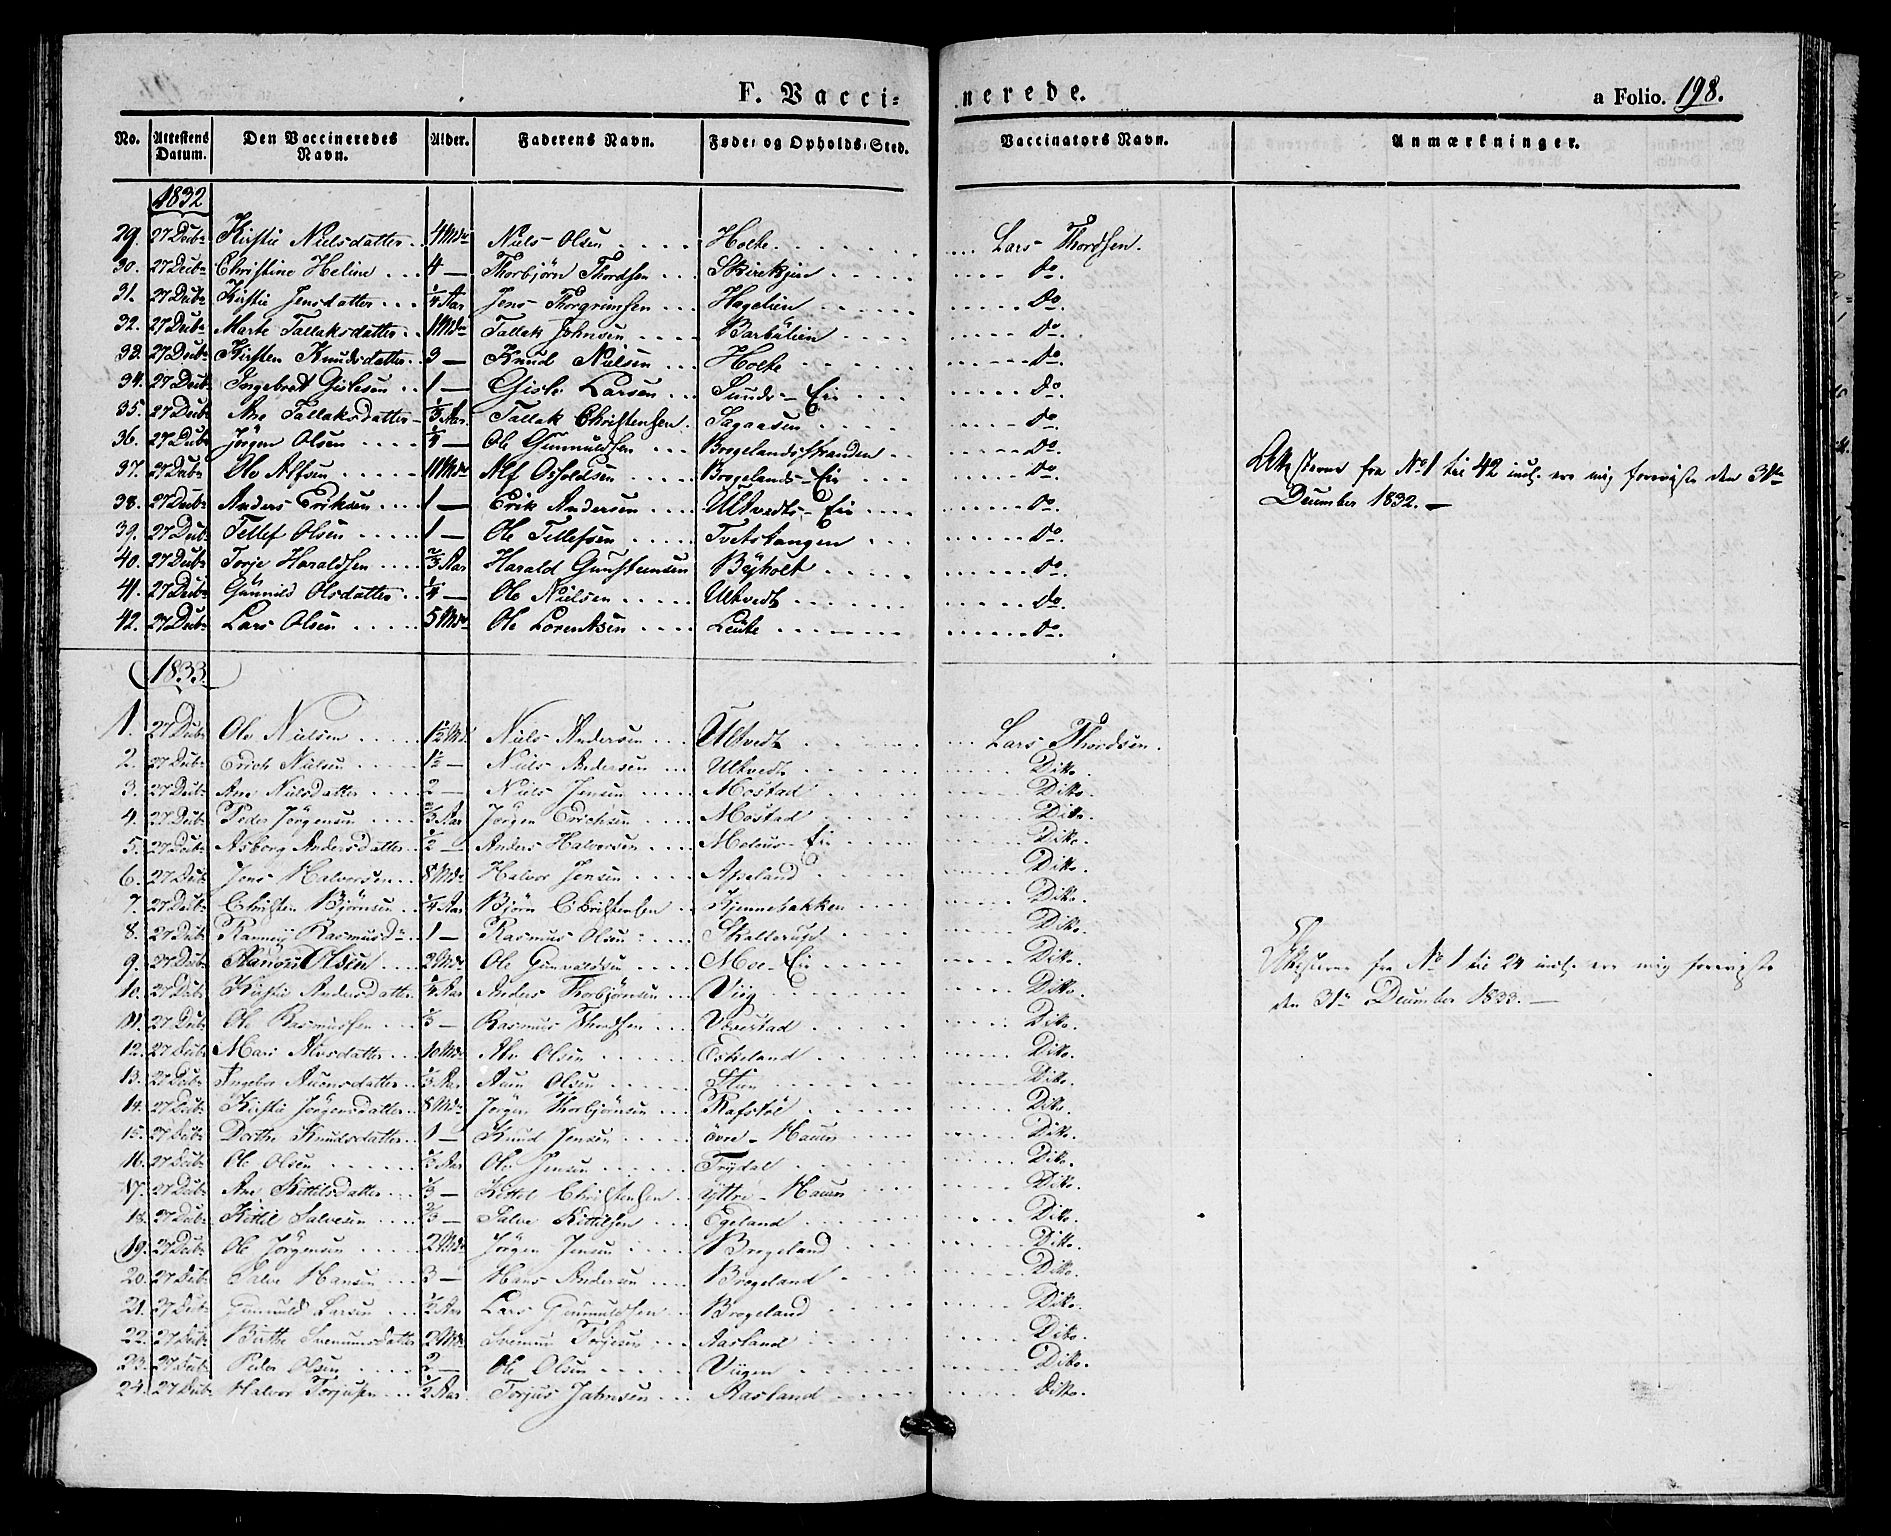 F. Vaccinerede. a Folio. 198.
No. Attestens Datum. Den Vaccineredes Navn. Alder. Faderens Navn. Føde- og Opholds-Sted. Vaccinators Navn. Anmærkninger.
1832
29. 27 Decbr Kirstie Nielsdatter 4 Mdr Niels Olsen Holte Lars Thordsen.
30. 27 Decbr Christine Heline 4 — Thorbjörn Thordsen do.
31. 27 Decbr Kirstie Jensdatter 1/4 Aar Jens Thorgrimsen Hagelien do.
32. 27 Decbr Marte Tallaksdatter Tallak Johnsen Barbülien do.
33. 27 Decbr Kirsten Knudsdatter 3 — Knud Nielsen Holte do.
34. 27 Decbr Ingebret Gislesen 1 — Gisle Larsen Sunds-Eie do.
35. 27 Decbr Ane Tallaksdatter 1/3 Aar Tallak Christensen Sagaasen do.
36. 27 Decbr Jörgen Olsen 1/4 — Ole Gunnuldsen Bregelandsstranden do.
37. 27 Decbr Ole Alfsen Alf Osuldsen Bregelands-Eie do. Attesterne fra No 1 til 42 incl. ere mig foreviiste den 31te
38. 27 Decbr Anders Eriksen 1 — Erik Andersen Ultvedts-Eie do. December 1832. —
39. 27 Decbr Tellef Olsen 1 — Ole Tellefsen Tvetstangen do.
40. 27 Decbr Torje Haraldsen 2/3 Aar Harald Gunsteinsen Byholt do.
41. 27 Decbr Gunnild Olsdatter 1/4 — Ole Nielsen Ultvedt do.
42. 27 Decbr Lars Olsen 5 Mdr Ole Lorentsen Leüte do.
1833
1. 27 Decbr Ole Nielsen 1½ Md. Niels Andersen Ultvedt Lars Thordsen.
2. 27 Decbr Erich Nielsen 1½ — Niels Andersen Ultvedt Ditto.
3. 27 Decbr Ane Nielsdatter 2 — Niels Jensen Mostad Ditto.
4. 27 Decbr Peder Jörgensen 2/3 Aar Jörgen Erichsen Mostad Ditto.
5. 27 Decbr Asborg Andersdatter 1/2 — Anders Halvorsen Ditto.
6. 27 Decbr Jens Halvorsen 8 Mdr Halvor Jensen Apeland Ditto.
7. 27 Decbr Christen Björnsen 1/4 Aar Björn Christensen Hjennebakken Ditto.
8. 27 Decbr Rasmusdr 1 — Rasmus Olsen Skallerud Ditto.
9. 27 Decbr Olsen 2 Mdr Ole Gunvaldsen Moe-Eie Ditto. Attesterne fra No 1 til 24 incl. ere mig foreviiste
10. 27 Decbr Kirstie Andersdatter 1/4 Aar Anders Thorbjörnsen Viig Ditto. den 31te December 1833. —
11. 27 Decbr Ole Rasmussen 1/3 — Rasmus Thordsen Værestad Ditto.
12. 27 Decbr Mari Alvsdatter 10 Mdr Alv Olsen Eskeland Ditto.
13. 27 Decbr Ingebor Auensdatter 1/3 Aar Auen Olsen Ditto.
14. 27 Decbr Kirstie Jörgensdatter 8 Mdr Jörgen Thorbjörnsen Rafstöl Ditto.
15. 27 Decbr Dorthe Knudsdatter 1 — Knud Jensen övre-Hauen Ditto.
16. 27 Decbr Ole Olsen Aar Ole Jensen Trydal Ditto.
17. 27 Decbr Ane Kittilsdatter 1/3 — Kittel Christensen Yttre-Hauen Ditto.
18. 27 Decbr Kittil Salvesen 2/3 — Salve Kittilsen Egeland Ditto.
19. 27 Decbr Ole Jörgensen 2 Mdr Jörgen Jensen Bregeland Ditto.
20. 27 Decbr Salve Hansen 3 — Hans Andersen Bregeland Ditto.
21. 27 Decbr Gunnuld Larsen 1/2 Aar Lars Gunnuldsen Bregeland Ditto.
22. 27 Decbr Birthe Svenumsdatter 2 Mdr Svenum Torjesen Aasland Ditto.
23. 27 Decbr Peder Olsen 2 — Ole Olsen Viigen Ditto.
24. 27 Decbr Halvor Torjusen 1/2 Aar Torjus Jahnsen Aasland Ditto.